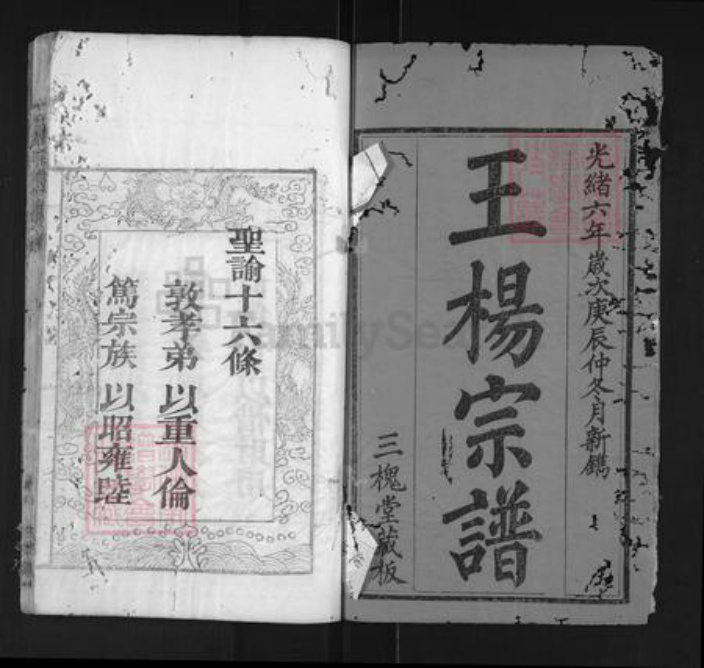 光緒六年歲次庚辰仲冬月新鐫
王楊宗譜
三槐堂藏板
聖諭十六條
敦孝弟以重人倫
篤宗族以昭雍睦
FamilySea